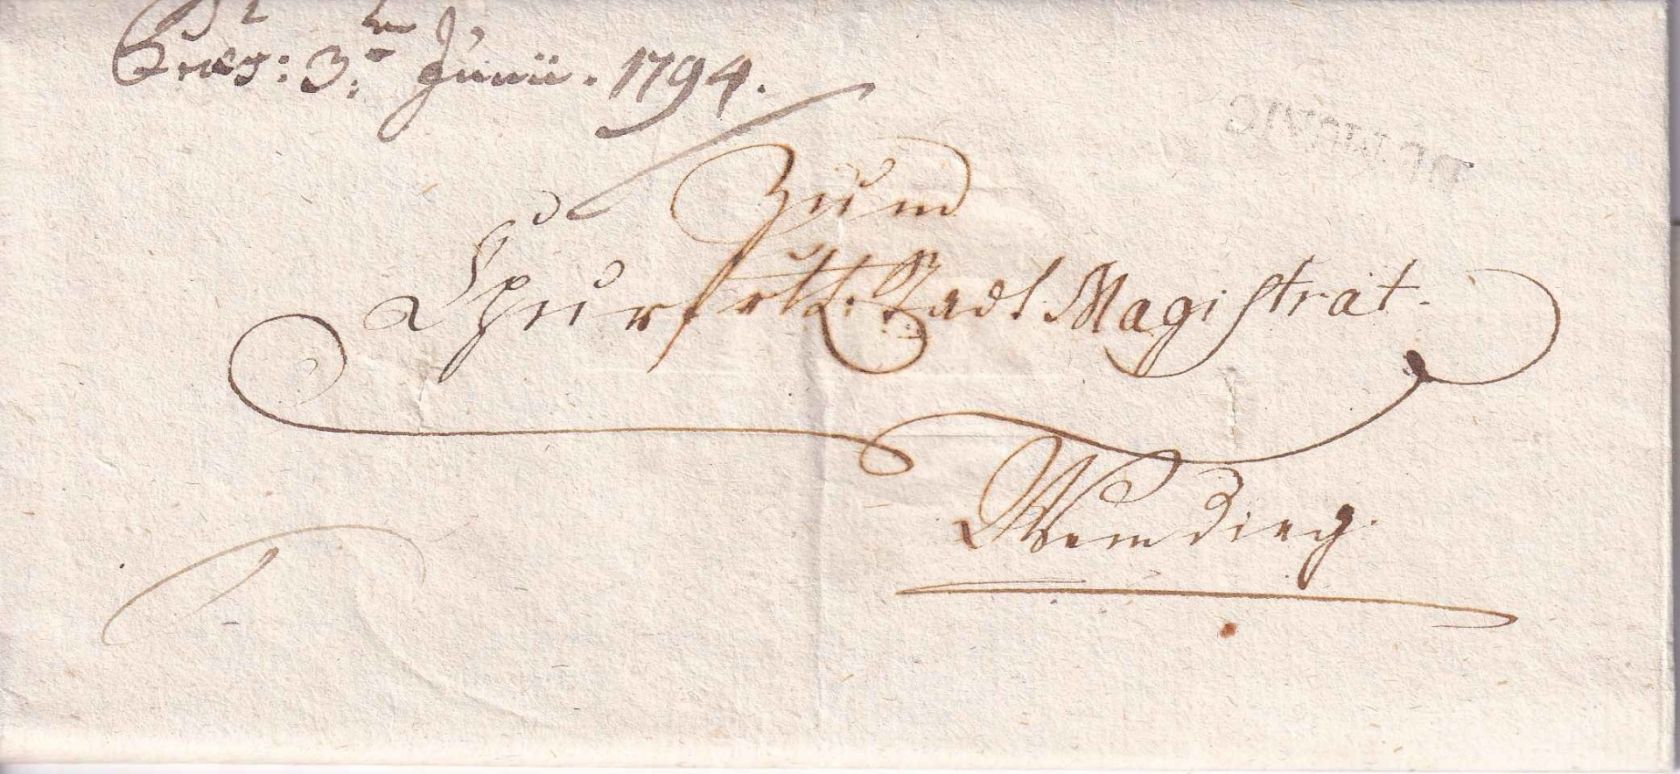 Præs: 3ten Junii. 1794.
Zum
Churfrtl: Stadt Magistrat.
Wemding.